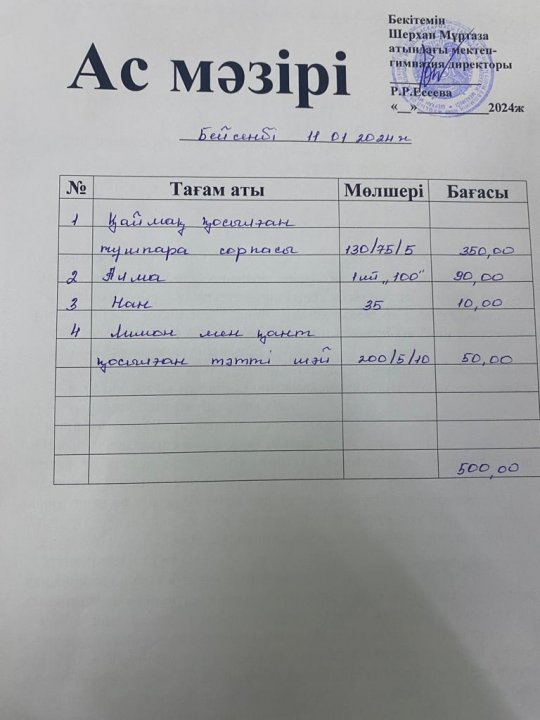 Бекітемін
Шерхан Мұртаза
атындағы мектеп-
гимназия директоры
Р.Р.Есеева
«__»____________2024ж
Ас мәзірі
Бейсенбі 11 01 2024 ж
№ Тағам аты Мөлшері Бағасы
1 Қаймақ қосылған
тұшпара сорпасы 130/75/5 350,00
2 Алма 1шт „100" 90,00
3 Нан 35 10,00
4 Лимон мен қант
қосылған тәтті шәй 200/5/10 50,00
500,00